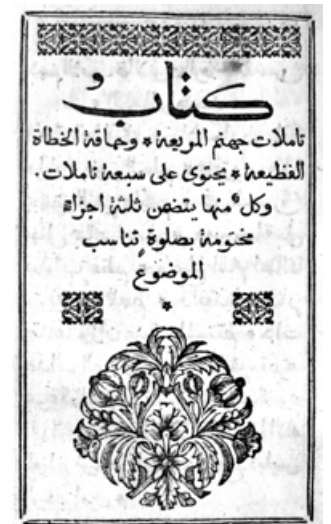 كتاب
تاملات جهنم المريعة * وحماقة الخطاة
الفظيعة * يحتوى على سبعة تاملات .
وكل منها يتضمن ثلثة اجزاء
مختومة بصلوة تناسب
الموضوع
*